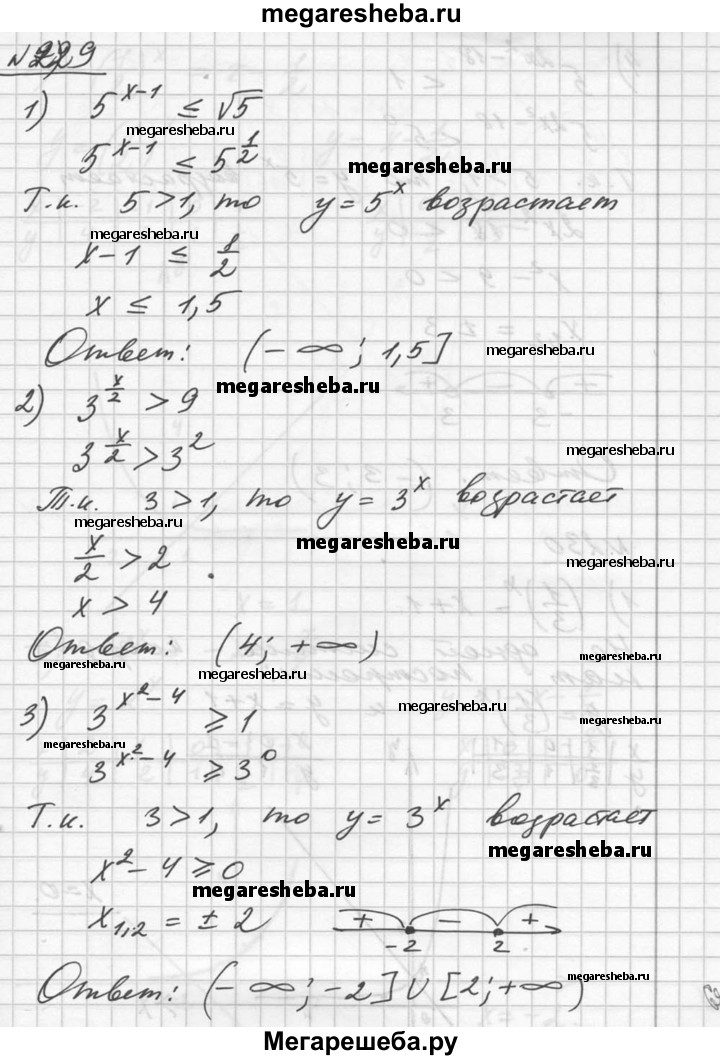 megaresheba.ru
N 229
1) 5^(x-1) ≤ √5
megaresheba.ru
5^(x-1) ≤ 5^(1/2)
megaresheba.ru
Т.к. 5 > 1, то y = 5^x возрастает
megaresheba.ru
x - 1 ≤ 1/2
x ≤ 1,5
Ответ: (-∞; 1,5]
megaresheba.ru
2) 3^(x/2) > 9
megaresheba.ru
3^(x/2) > 3^2
megaresheba.ru
Т.к. 3 > 1, то y = 3^x возрастает
megaresheba.ru
megaresheba.ru
x/2 > 2
megaresheba.ru
x > 4
Ответ: (4; +∞)
megaresheba.ru
megaresheba.ru
megaresheba.ru
3) 3^(x^2-4) ≥ 1
megaresheba.ru
megaresheba.ru
megaresheba.ru
3^(x^2-4) ≥ 3^0
Т.к. 3 > 1, то y = 3^x возрастает
megaresheba.ru
x^2 - 4 ≥ 0
megaresheba.ru
x1,2 = ± 2
+ - +
-2 2
Ответ: (-∞; -2] U [2; +∞)
megaresheba.ru
Мегарешеба.ру